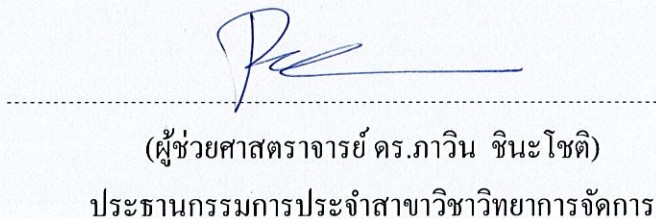 (ผู้ช่วยศาสตราจารย์ ดร.ภาวิน ชินะโชติ)
ประธานกรรมการประจำสาขาวิชาวิทยาการจัดการ